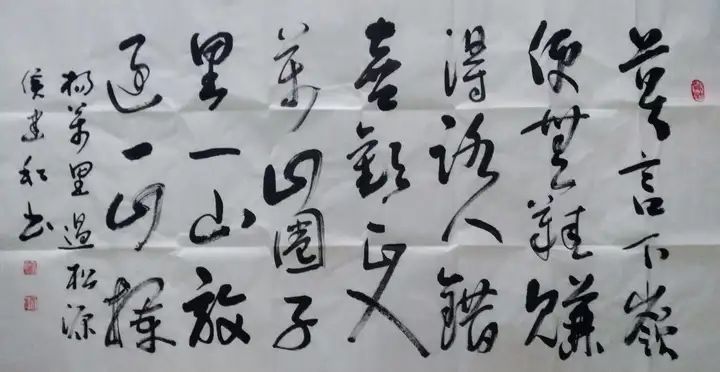 莫言下嶺
便無難賺
得路人錯
喜歡正入
萬山圈子
里一山放
過一山攔
楊萬里過松源
侯建和书